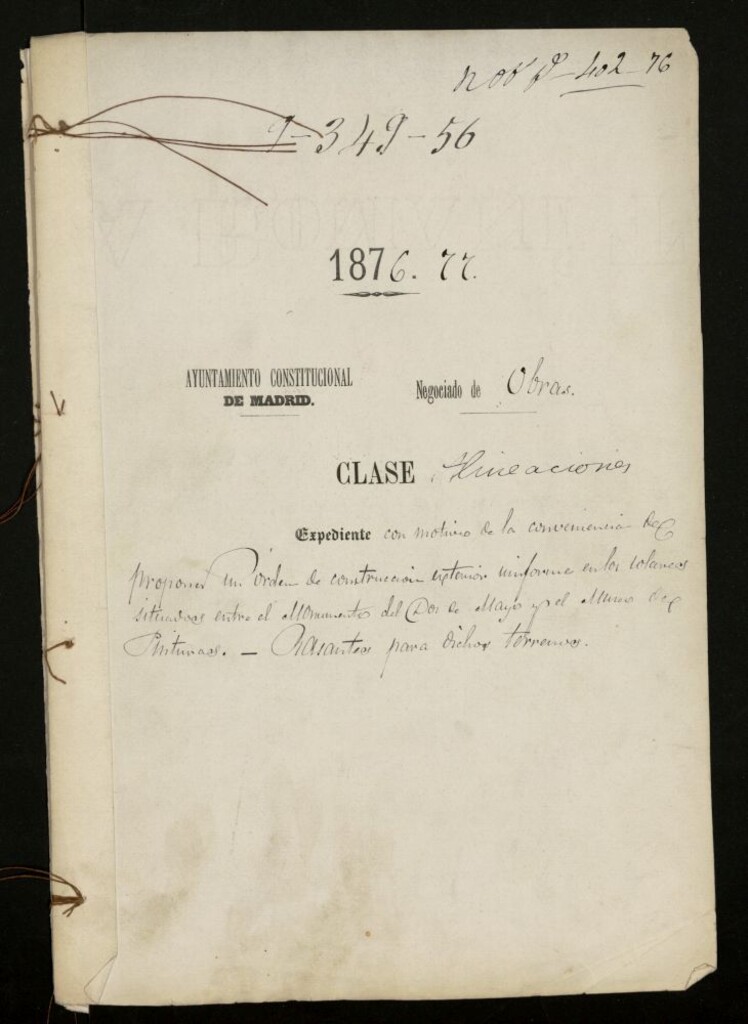 402-76
9-349-56
1876.77.
AYUNTAMIENTO CONSTITUCIONAL
DE MADRID.
Negociado de Obras.
CLASE Alineaciones
Expediente con motivo de la conveniencia de
proponer un orden de construccion exterior uniforme en los solares
situados entre el Monumento del Dos de Mayo y el Museo de
Pinturas. — Rasantes para dichos terrenos.